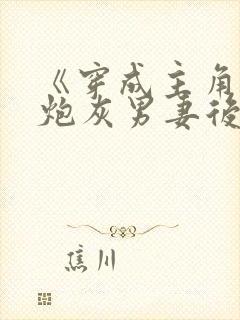 《穿成主角
炮灰男妻後
焦川